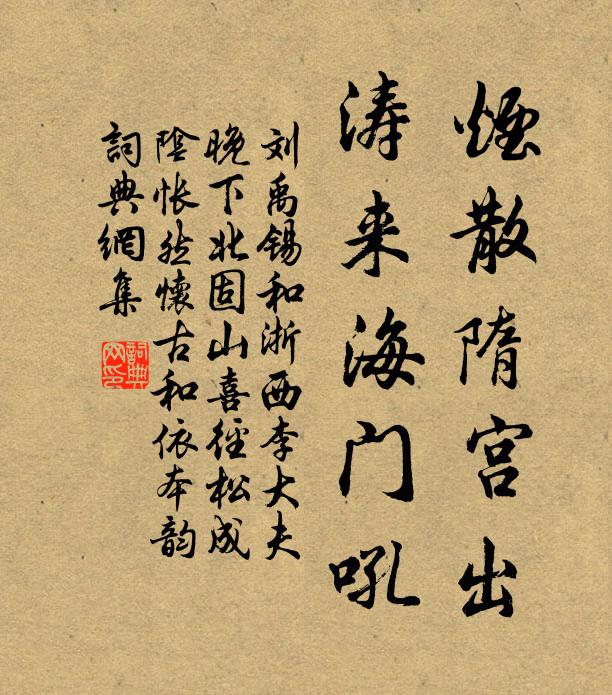 煙散隋宫出
涛来海门吼
刘禹锡和浙西李大夫
晚下北固山喜径松成
陰怅然懷古和依本韵
詞典網集
詞典网印